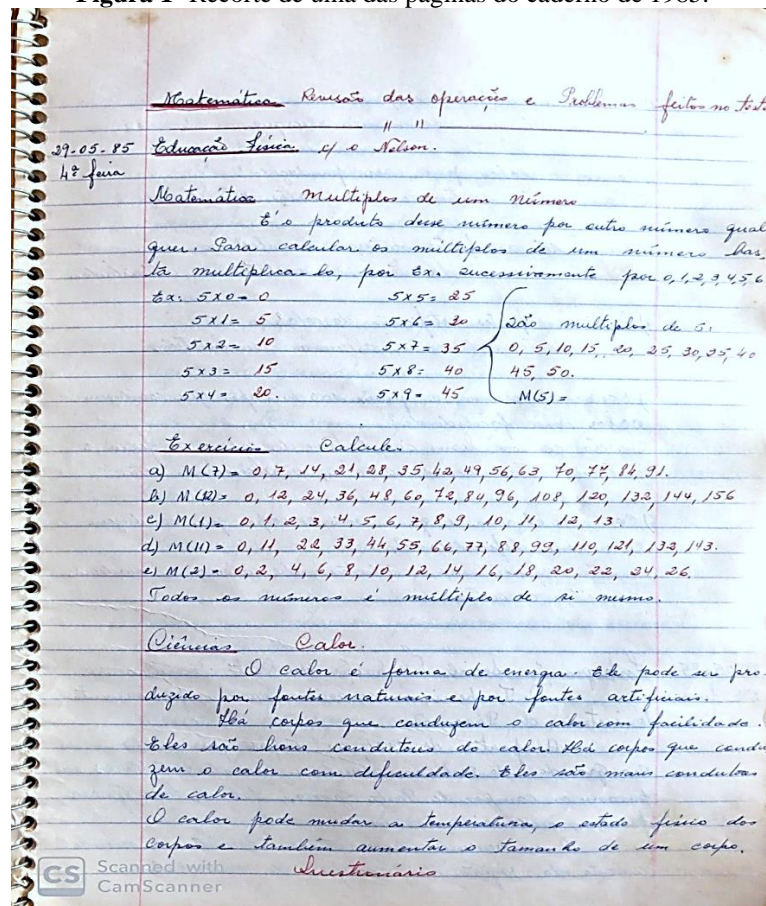 Figura 1- Recorte de uma das páginas do caderno de 1985.
Matemática Revisão das operações e Problemas feitos no test.
" "
29-05-85 Educação Física c/ o Nelson.
4ª feira
Matemática Multiplos de um número
É o produto desse número por outro número qual
quer. Para calcular os múltiplos de um número bas,
ta multiplica-lo, por Ex. sucessivamente por 0,1,2,3,4,5,6
Ex: 5x0=0 5x5= 25
5x1= 5 5x6= 30 São multiplos de 5:
5x2= 10 5x7= 35 0, 5, 10, 15, 20, 25, 30, 35, 40
5x3= 15 5x8= 40 45, 50.
5x4= 20. 5x9= 45 M(5)=
Exercícios Calcule.
a) M(7)= 0, 7, 14, 21, 28, 35, 42, 49, 56, 63, 70, 77, 84, 91.
b) M(12)= 0, 12, 24, 36, 48, 60, 72, 84, 96, 108, 120, 132, 144, 156
c) M(1)= 0, 1, 2, 3, 4, 5, 6, 7, 8, 9, 10, 11, 12, 13.
d) M(11)= 0, 11, 22, 33, 44, 55, 66, 77, 88, 99, 110, 121, 132, 143.
e) M(2)= 0, 2, 4, 6, 8, 10, 12, 14, 16, 18, 20, 22, 24, 26.
Todos os números é múltiplo de si mesmo.
Ciências Calor.
O calor é forma de energia. Ele pode ser pro-
duzido por fontes naturais e por fontes artificiais.
Há corpos que conduzem o calor com facilidade.
Eles são bons condutores do calor. Há corpos que condu
zem o calor com dificuldade. Eles são maus condutores
de calor.
O calor pode mudar a temperatura, o estado físico dos
corpos e também aumentar o tamanho de um corpo.
Questionário
CS Scanned with
CamScanner